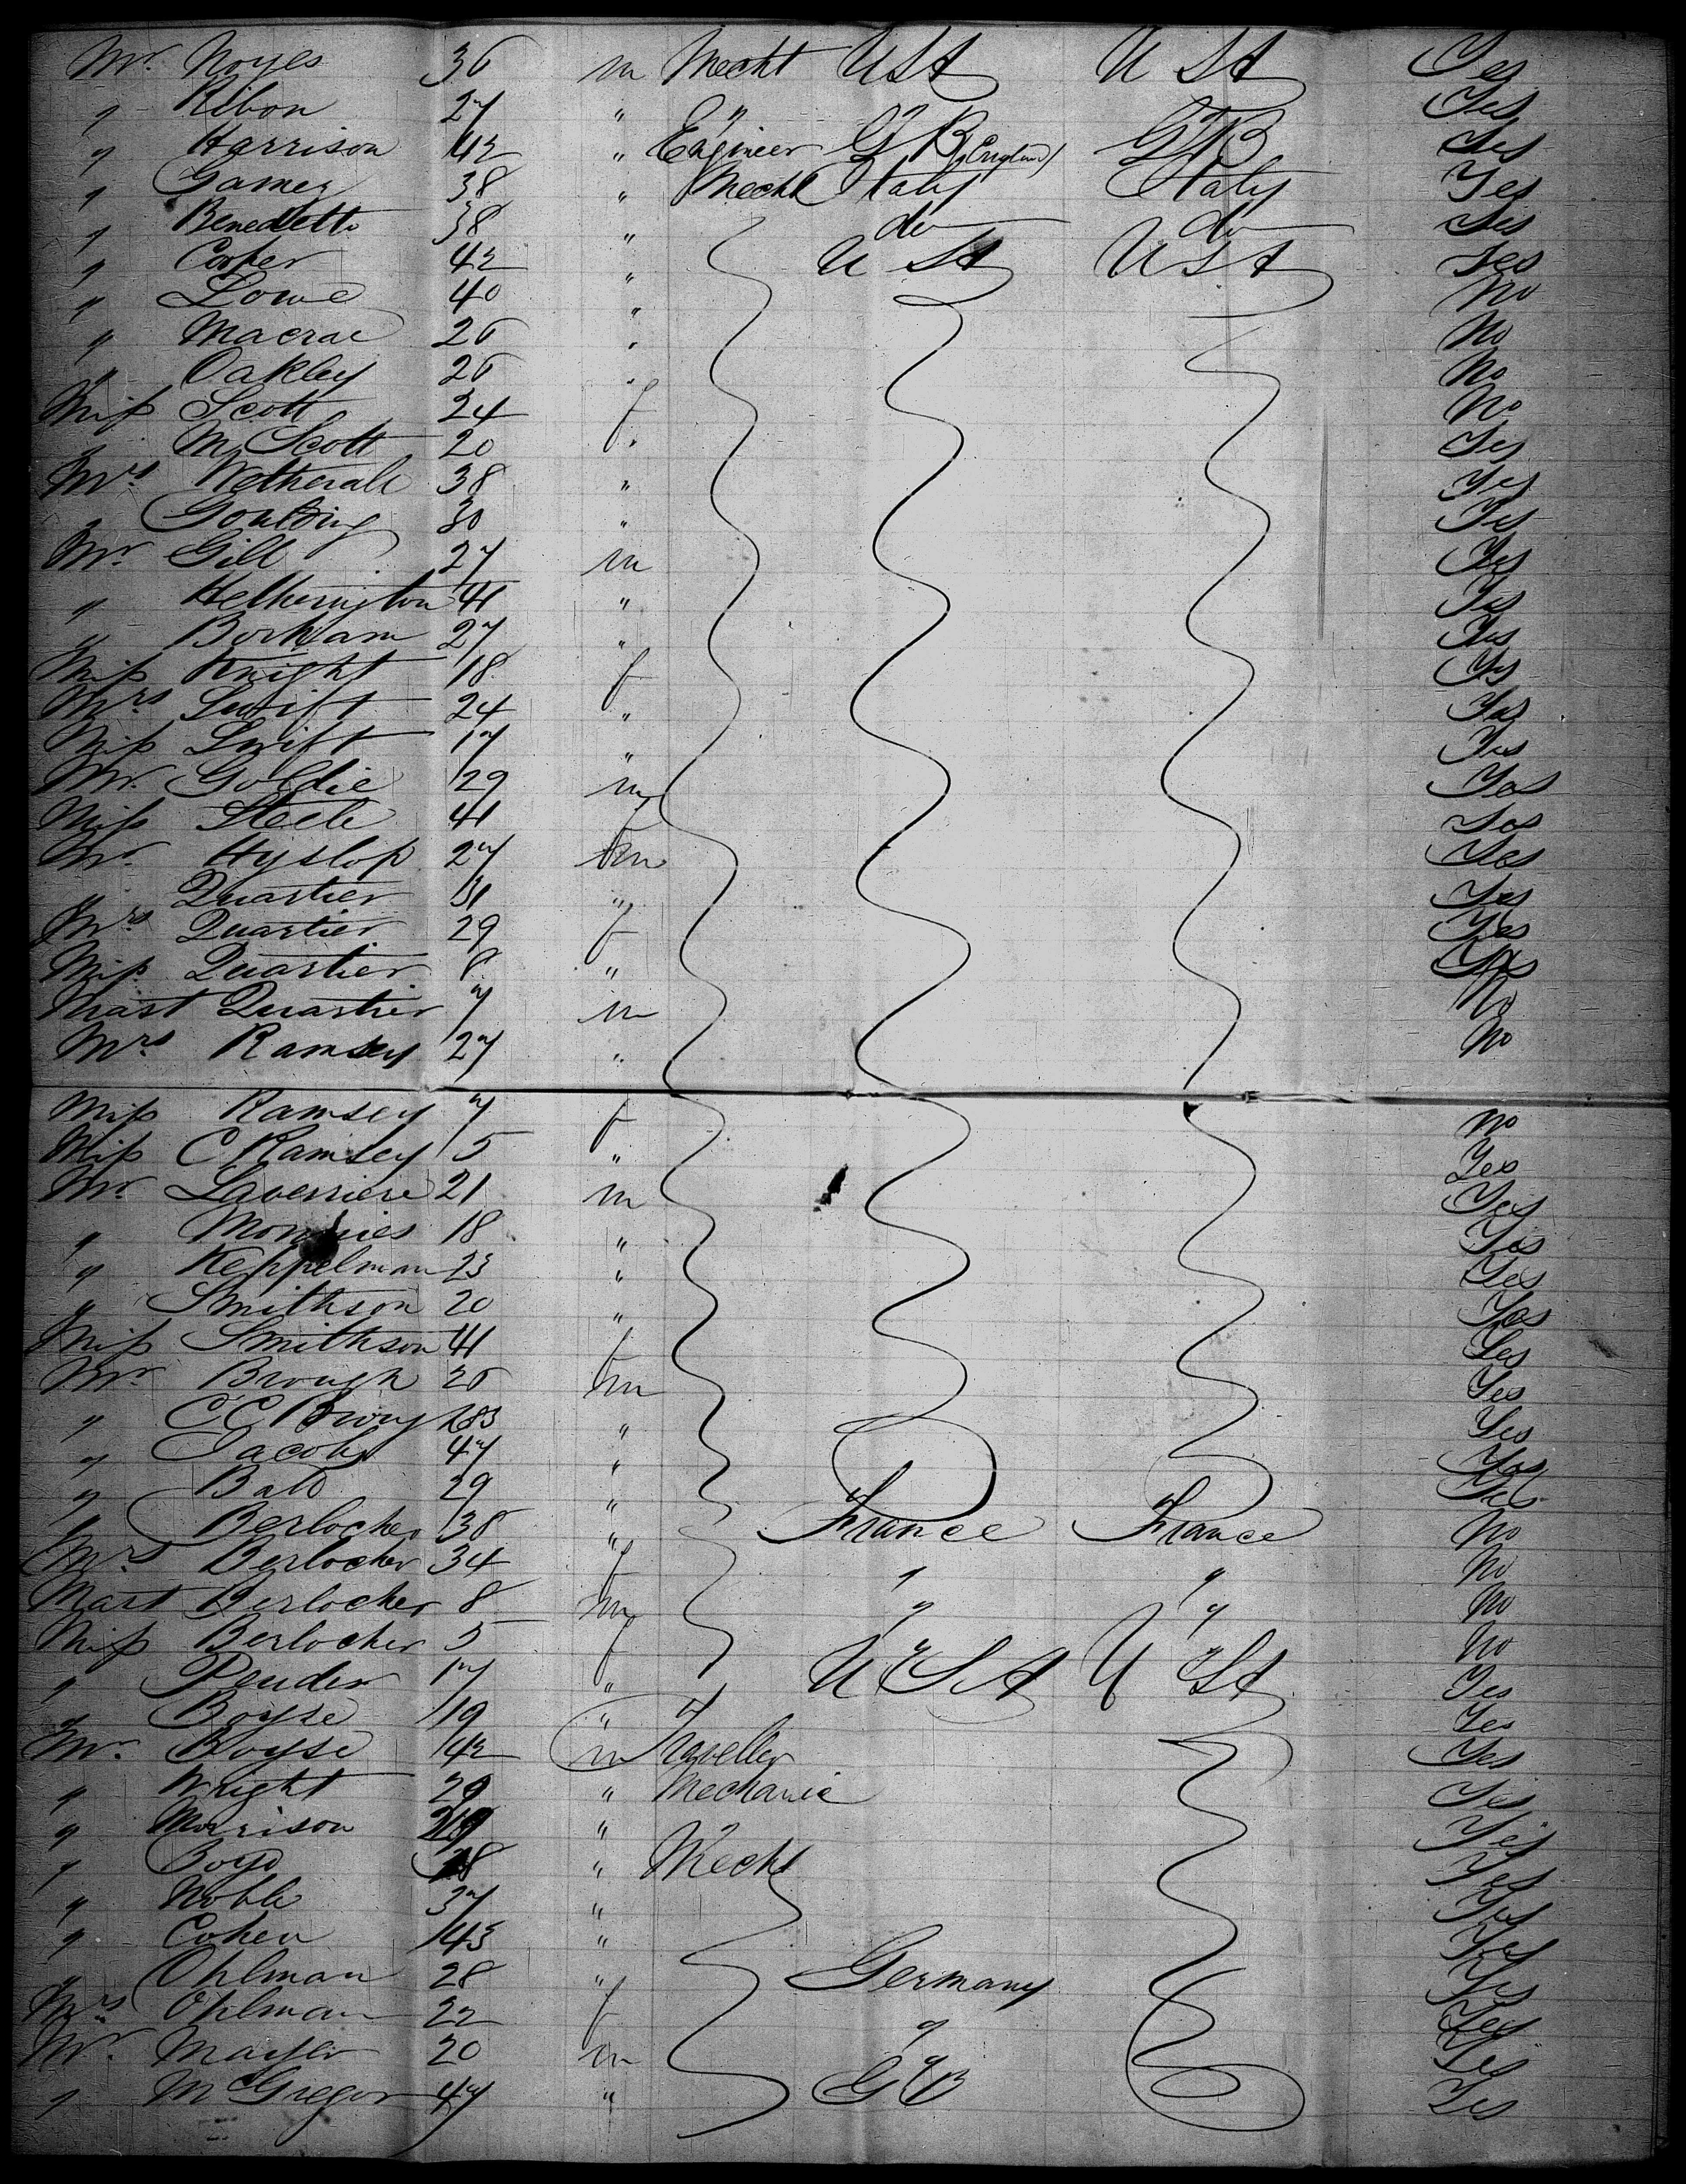 Mr. Noyes 36 m Mecht USA USA Yes
" Ribon 27 " " " " Yes
" Harrison 42 " Engineer G B (England) G B Yes
" 38 " Mecht Italy Italy Yes
" Benedetto 38 " do do Yes
" Cooper 42 " USA USA Yes
" Lowe 40 " No
" Macrae 26 " No
" Oakley 26 " No
Miss Scott 24 f No
" M Scott 20 " Yes
Mrs Wetherall 38 " Yes
" Goulding 30 " Yes
Mr. Gill 27 m Yes
" Hetherington 41 " Yes
" Borham 27 " Yes
Miss Knight 18 f Yes
Mrs Swift 24 " Yes
Miss Swift 17 " Yes
Mr. Goldie 29 m Yes
Miss Steele 41 f Yes
Mr Hyslop 27 m Yes
" Quartier 31 " Yes
Mrs Quartier 29 f Yes
Miss Quartier 8 " Yes
Mast Quartier 7 m No
Mrs Ramsey 27 " No
Miss Ramsey 7 f No
Miss C Ramsey 5 " Yes
Mr Laverriere 21 m Yes
" 18 " Yes
" Keppelman 23 " Yes
" Smithson 20 " Yes
Miss Smithson 41 f Yes
Mr Brough 26 m Yes
" C C " Yes
" Jacobs 47 " Yes
" Bald 29 " Yes
" Berlocher 38 " France France No
Mrs Berlocher 34 f " " No
Mast Berlocher 8 m " " No
Miss Berlocher 5 f " " No
" Pender 17 " USA USA Yes
" Boyse 19 " " Yes
Mr. Boyse 42 m Traveller Yes
" Wright 29 " Mechanic Yes
" Morrison " " Yes
" Boyd " Mecht Yes
" Noble 37 " Yes
" Cohen 43 " Yes
" Ohlman 28 " Germany Yes
Mrs Ohlman 22 f " Yes
Mr. Mayer 20 m " Yes
" McGregor 47 " G B Yes